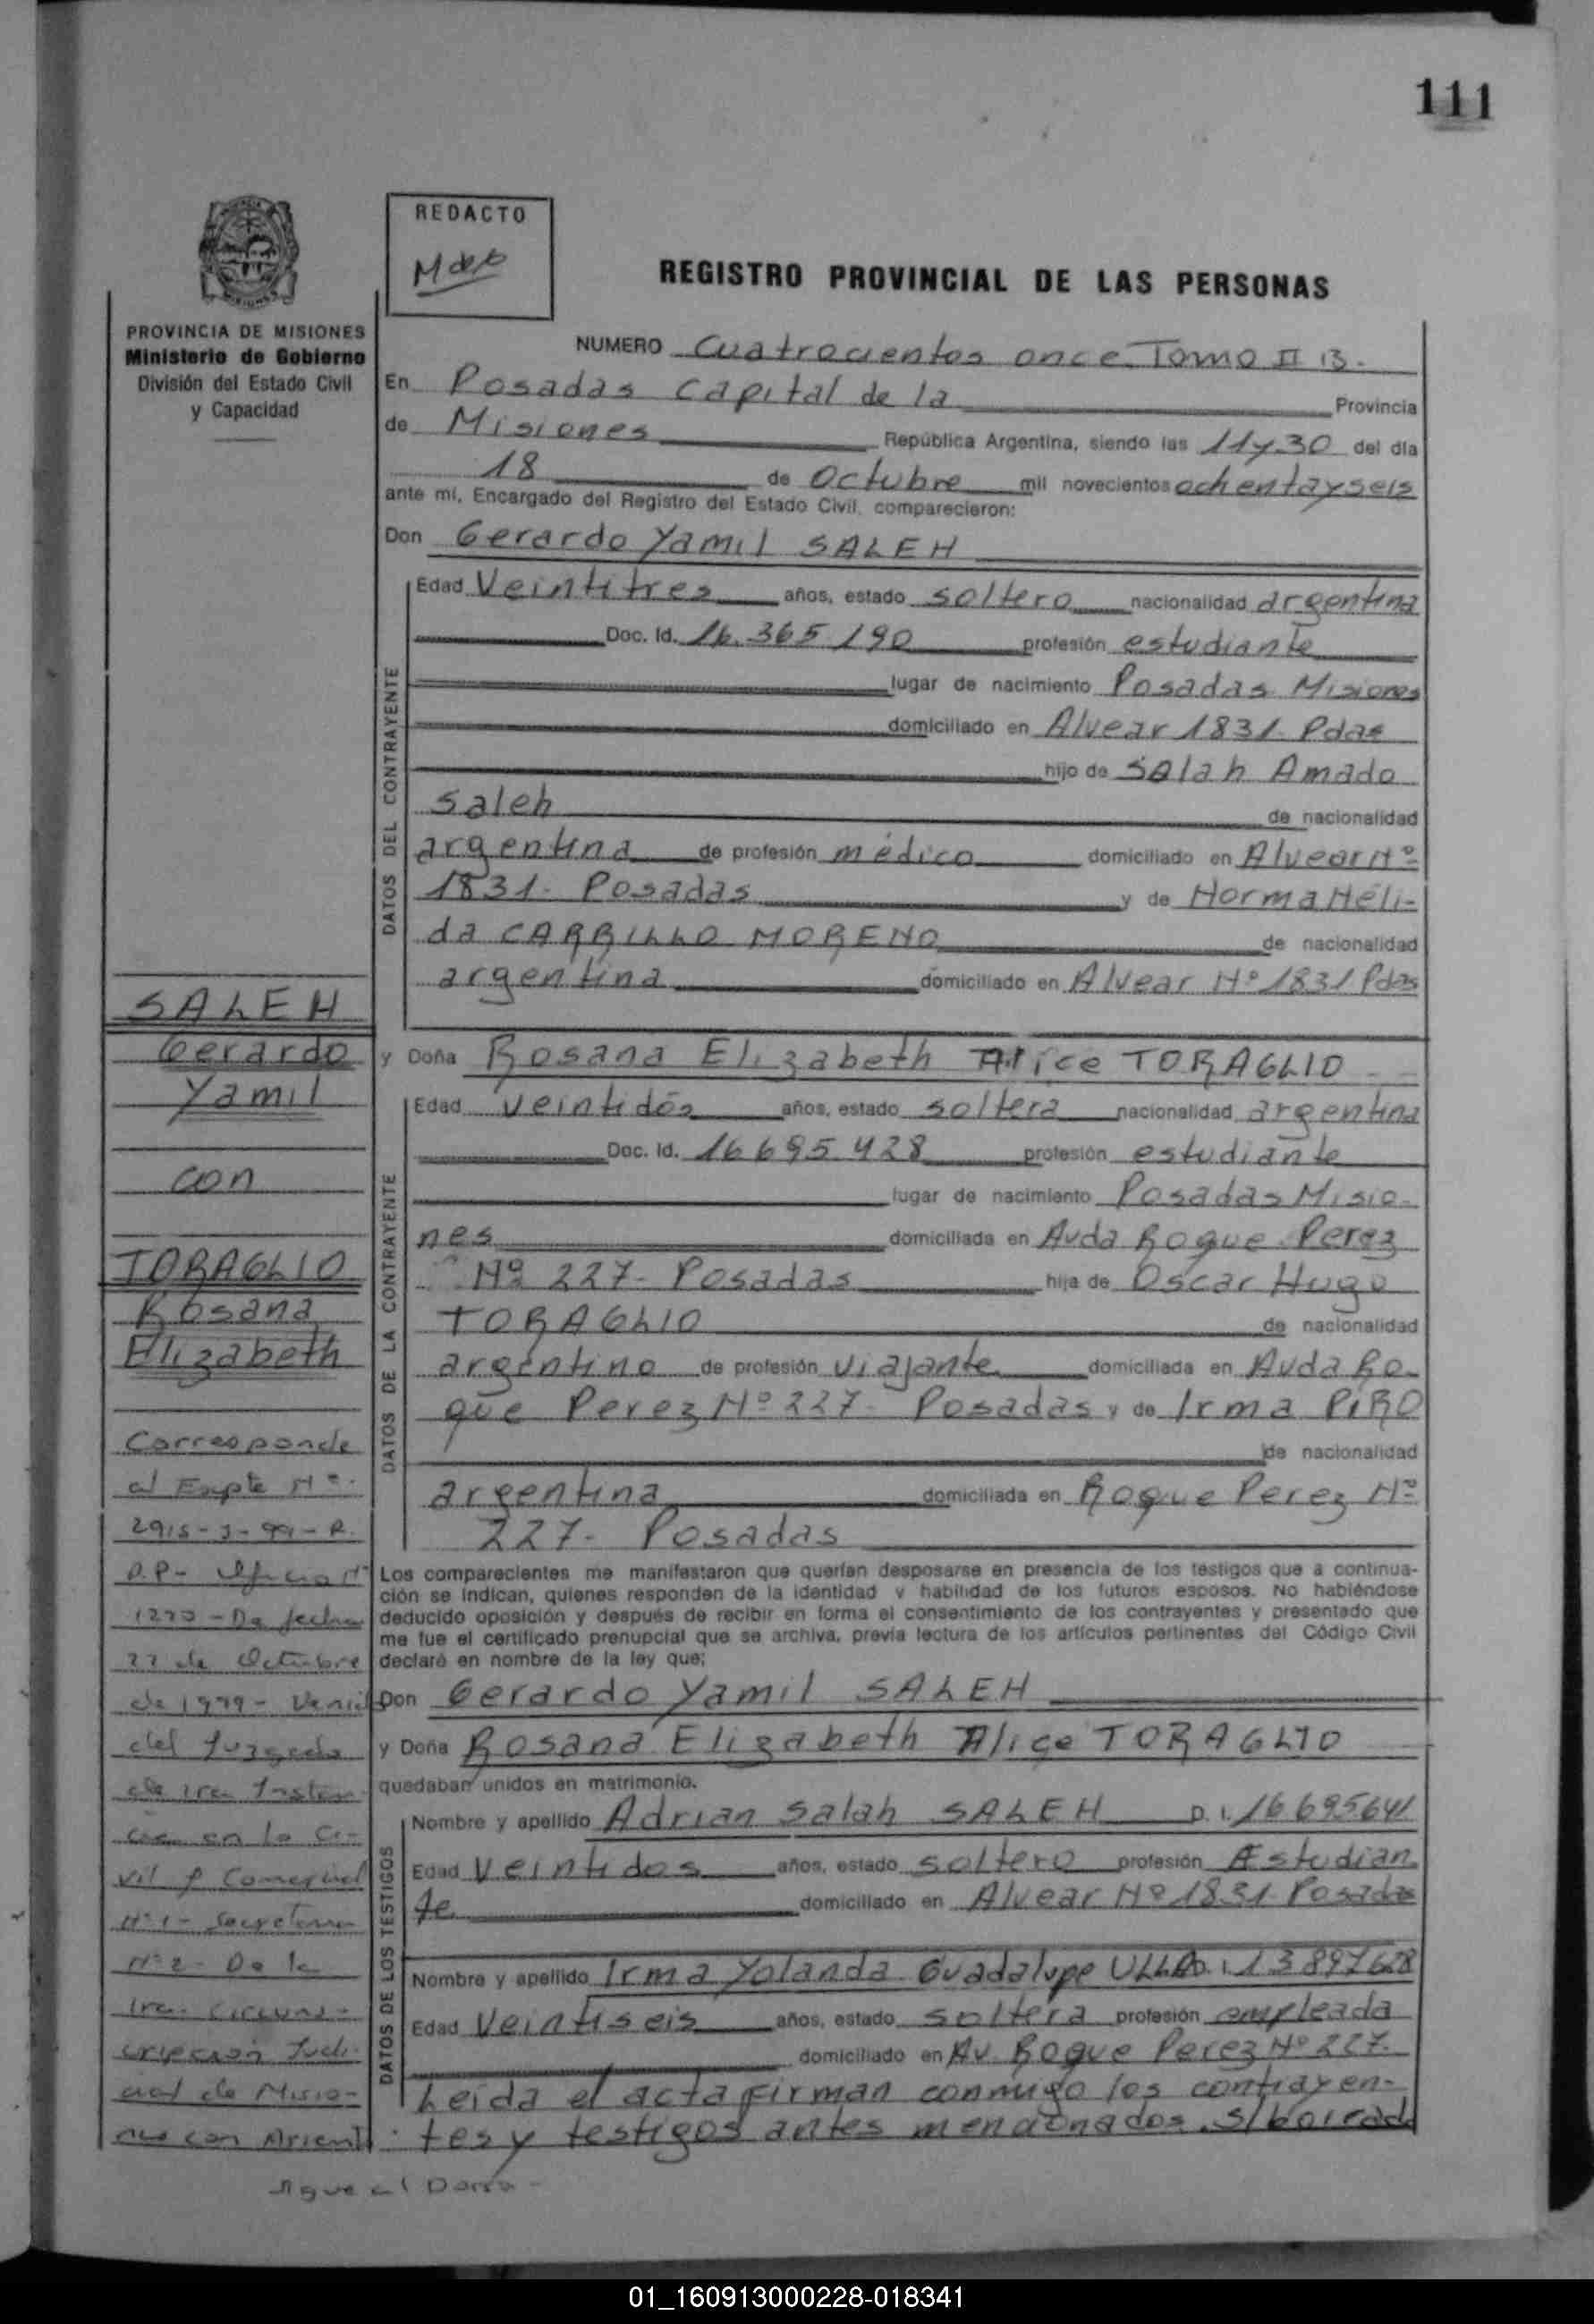 111
REDACTO
REGISTRO PROVINCIAL DE LAS PERSONAS
PROVINCIA DE MISIONES
Ministerio de Gobierno
División del Estado Civil
y Capacidad
NUMERO Cuatrocientos once Tomo II B.
En Posadas Capital de la Provincia
de Misiones República Argentina, siendo las 11y30 del día
18 de Octubre mil novecientos ochentayseis
ante mí, Encargado del Registro del Estado Civil, comparecieron:
Don Gerardo Yamil SALEH
DATOS DEL CONTRAYENTE
Edad Veintitres años, estado soltero nacionalidad argentina
Doc. Id. 16.365 190 profesión estudiante
lugar de nacimiento Posadas Misiones
domiciliado en Alvear 1831. Pdas
hijo de Salah Amado
Saleh de nacionalidad
argentina de profesión médico domiciliado en Alvear Nº
1831. Posadas y de Norma Néli-
da CARRILLO MORENO de nacionalidad
argentina domiciliado en Alvear Nº 1831 Pdas
y Doña Rosana Elizabeth Alice TORAGLIO
DATOS DE LA CONTRAYENTE
Edad veintidós años, estado soltera nacionalidad argentina
Doc. Id. 16 695 428 profesión estudiante
lugar de nacimiento Posadas Misio-
nes domiciliada en Avda Roque Perez
Nº 227- Posadas hija de Oscar Hugo
TORAGLIO de nacionalidad
argentino de profesión viajante domiciliada en Avda Ro-
que Perez Nº 227- Posadas y de Irma PIRO
de nacionalidad
argentina domiciliada en Roque Perez Nº
227- Posadas
Los comparecientes me manifestaron que querían desposarse en presencia de los testigos que a continua-
ción se indican, quienes responden de la identidad y habilidad de los futuros esposos. No habiéndose
deducido oposición y después de recibir en forma el consentimiento de los contrayentes y presentado que
me fue el certificado prenupcial que se archiva, previa lectura de los artículos pertinentes del Código Civil
declaré en nombre de la ley que;
Don Gerardo Yamil SALEH
y Doña Rosana Elizabeth Alice TORAGLIO
quedaban unidos en matrimonio.
DATOS DE LOS TESTIGOS
Nombre y apellido Adrian Salah SALEH D. I. 16 695641
Edad Veintidos años, estado soltero profesión Estudian
te domiciliado en Alvear Nº 1831- Posadas
Nombre y apellido Irma Yolanda Guadalupe 13 897628
Edad Veintiseis años, estado soltera profesión empleada
domiciliado en Av. Roque Perez Nº 227-
Leida el acta firman conmigo los contrayen-
tes y testigos antes mencionados. S/borrado
SALEH
Gerardo
Yamil
con
TORAGLIO
Rosana
Elizabeth
Corresponde
al Expte Nº
de fecha
27 de Octubre
de 1999-
del Juzgado
de 1ra Instan-
cia en lo Ci-
vil y Comercial
Nº 1 - Secretaria
Nº 2 - De la
1ra. Circuns-
cripción Judi-
cial de Misio-
nes con Asient
Sigue al Dorso-
01_160913000228-018341